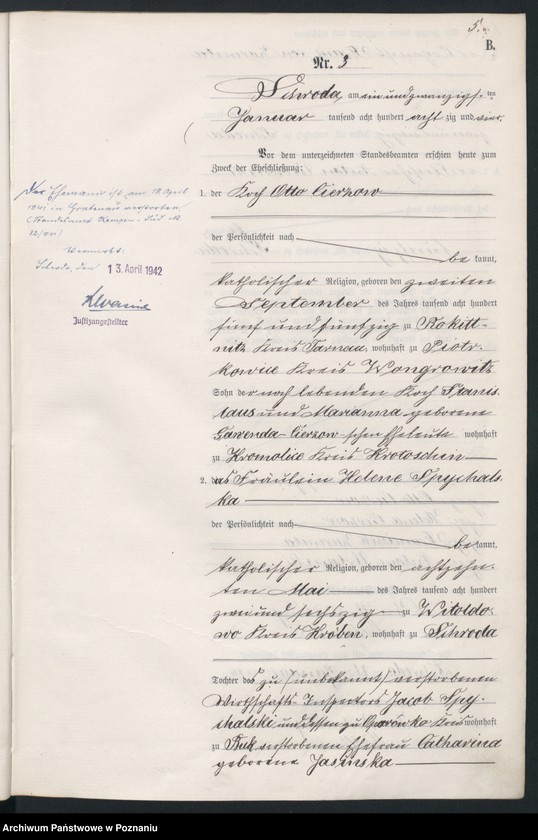 5.
B.
Nr. 3
Schroda, am ein und zwanzigsten
Januar tausend acht hundert achtzig und vier.
Vor dem unterzeichneten Standesbeamten erschien heute zum
Zweck der Eheschließung:
1. der Koch Otto Cierzow
der Persönlichkeit nach
bekannt,
katholischer Religion, geboren den zweiten
September des Jahres tausend acht hundert
fünf und fünfzig zu Rokitt-
nitz Kreis Tarnau, wohnhaft zu Piotr-
kowice Kreis Wongrowitz
Sohn der noch lebenden Koch Stanis-
laus und Marianna geborene
Gawenda-Cierzow-schen Eheleute wohnhaft
zu Kromolice Kreis Krotoschin
2. das Fräulein Helene Spychals-
ka
der Persönlichkeit nach
bekannt,
katholischer Religion, geboren den achtzehn-
ten Mai des Jahres tausend acht hundert
zwei und sechszig zu Witoldo-
wo Kreis Kröben, wohnhaft zu Schroda
Tochter des zu (unbekannt) verstorbenen
Wirthschafts-Inspectors Jacob Spy-
chalski und dessen zu Kreis wohnhaft
zu Buk verstorbenen Ehefrau Catharina
geborene Jasinska
Der Ehemann ist am 18. April
1941 in verstorben
(Standesamt Kempen-Süd N
Vermerkt:
Schroda, den 13. April 1942
Justizangestellter
Archiwum Państwowe w Poznaniu